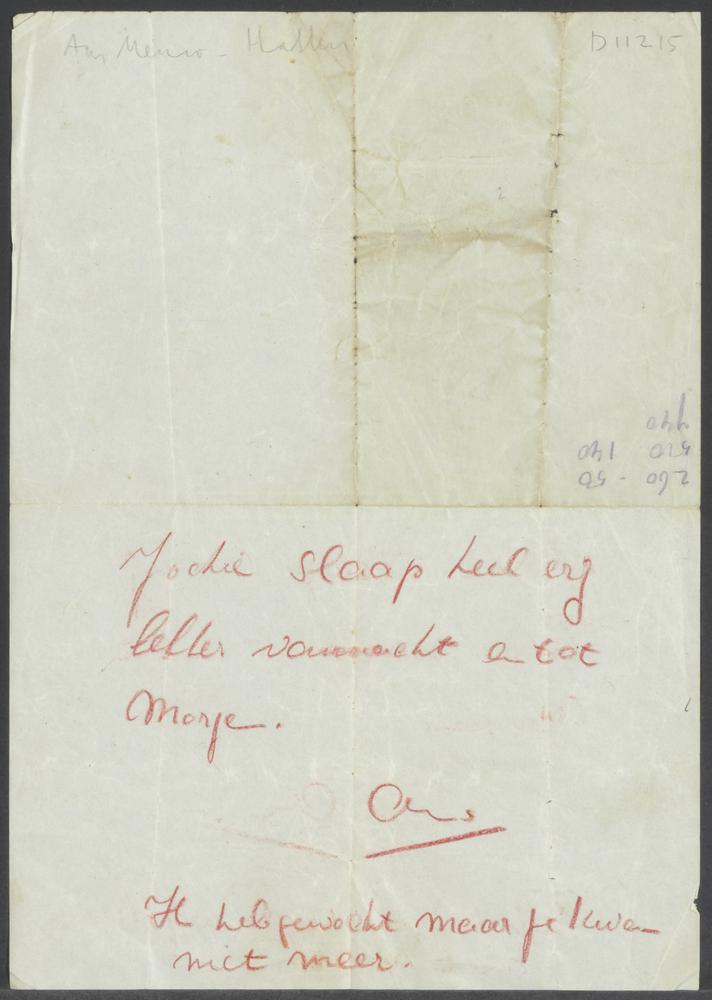 Ans Menco - Hallen
D 11215
440
510 140
260 - 50
Jochie slaap heel erg
lekker vannacht en tot
Morje.
Ans
Ik heb gewacht maar je kwam
niet meer.